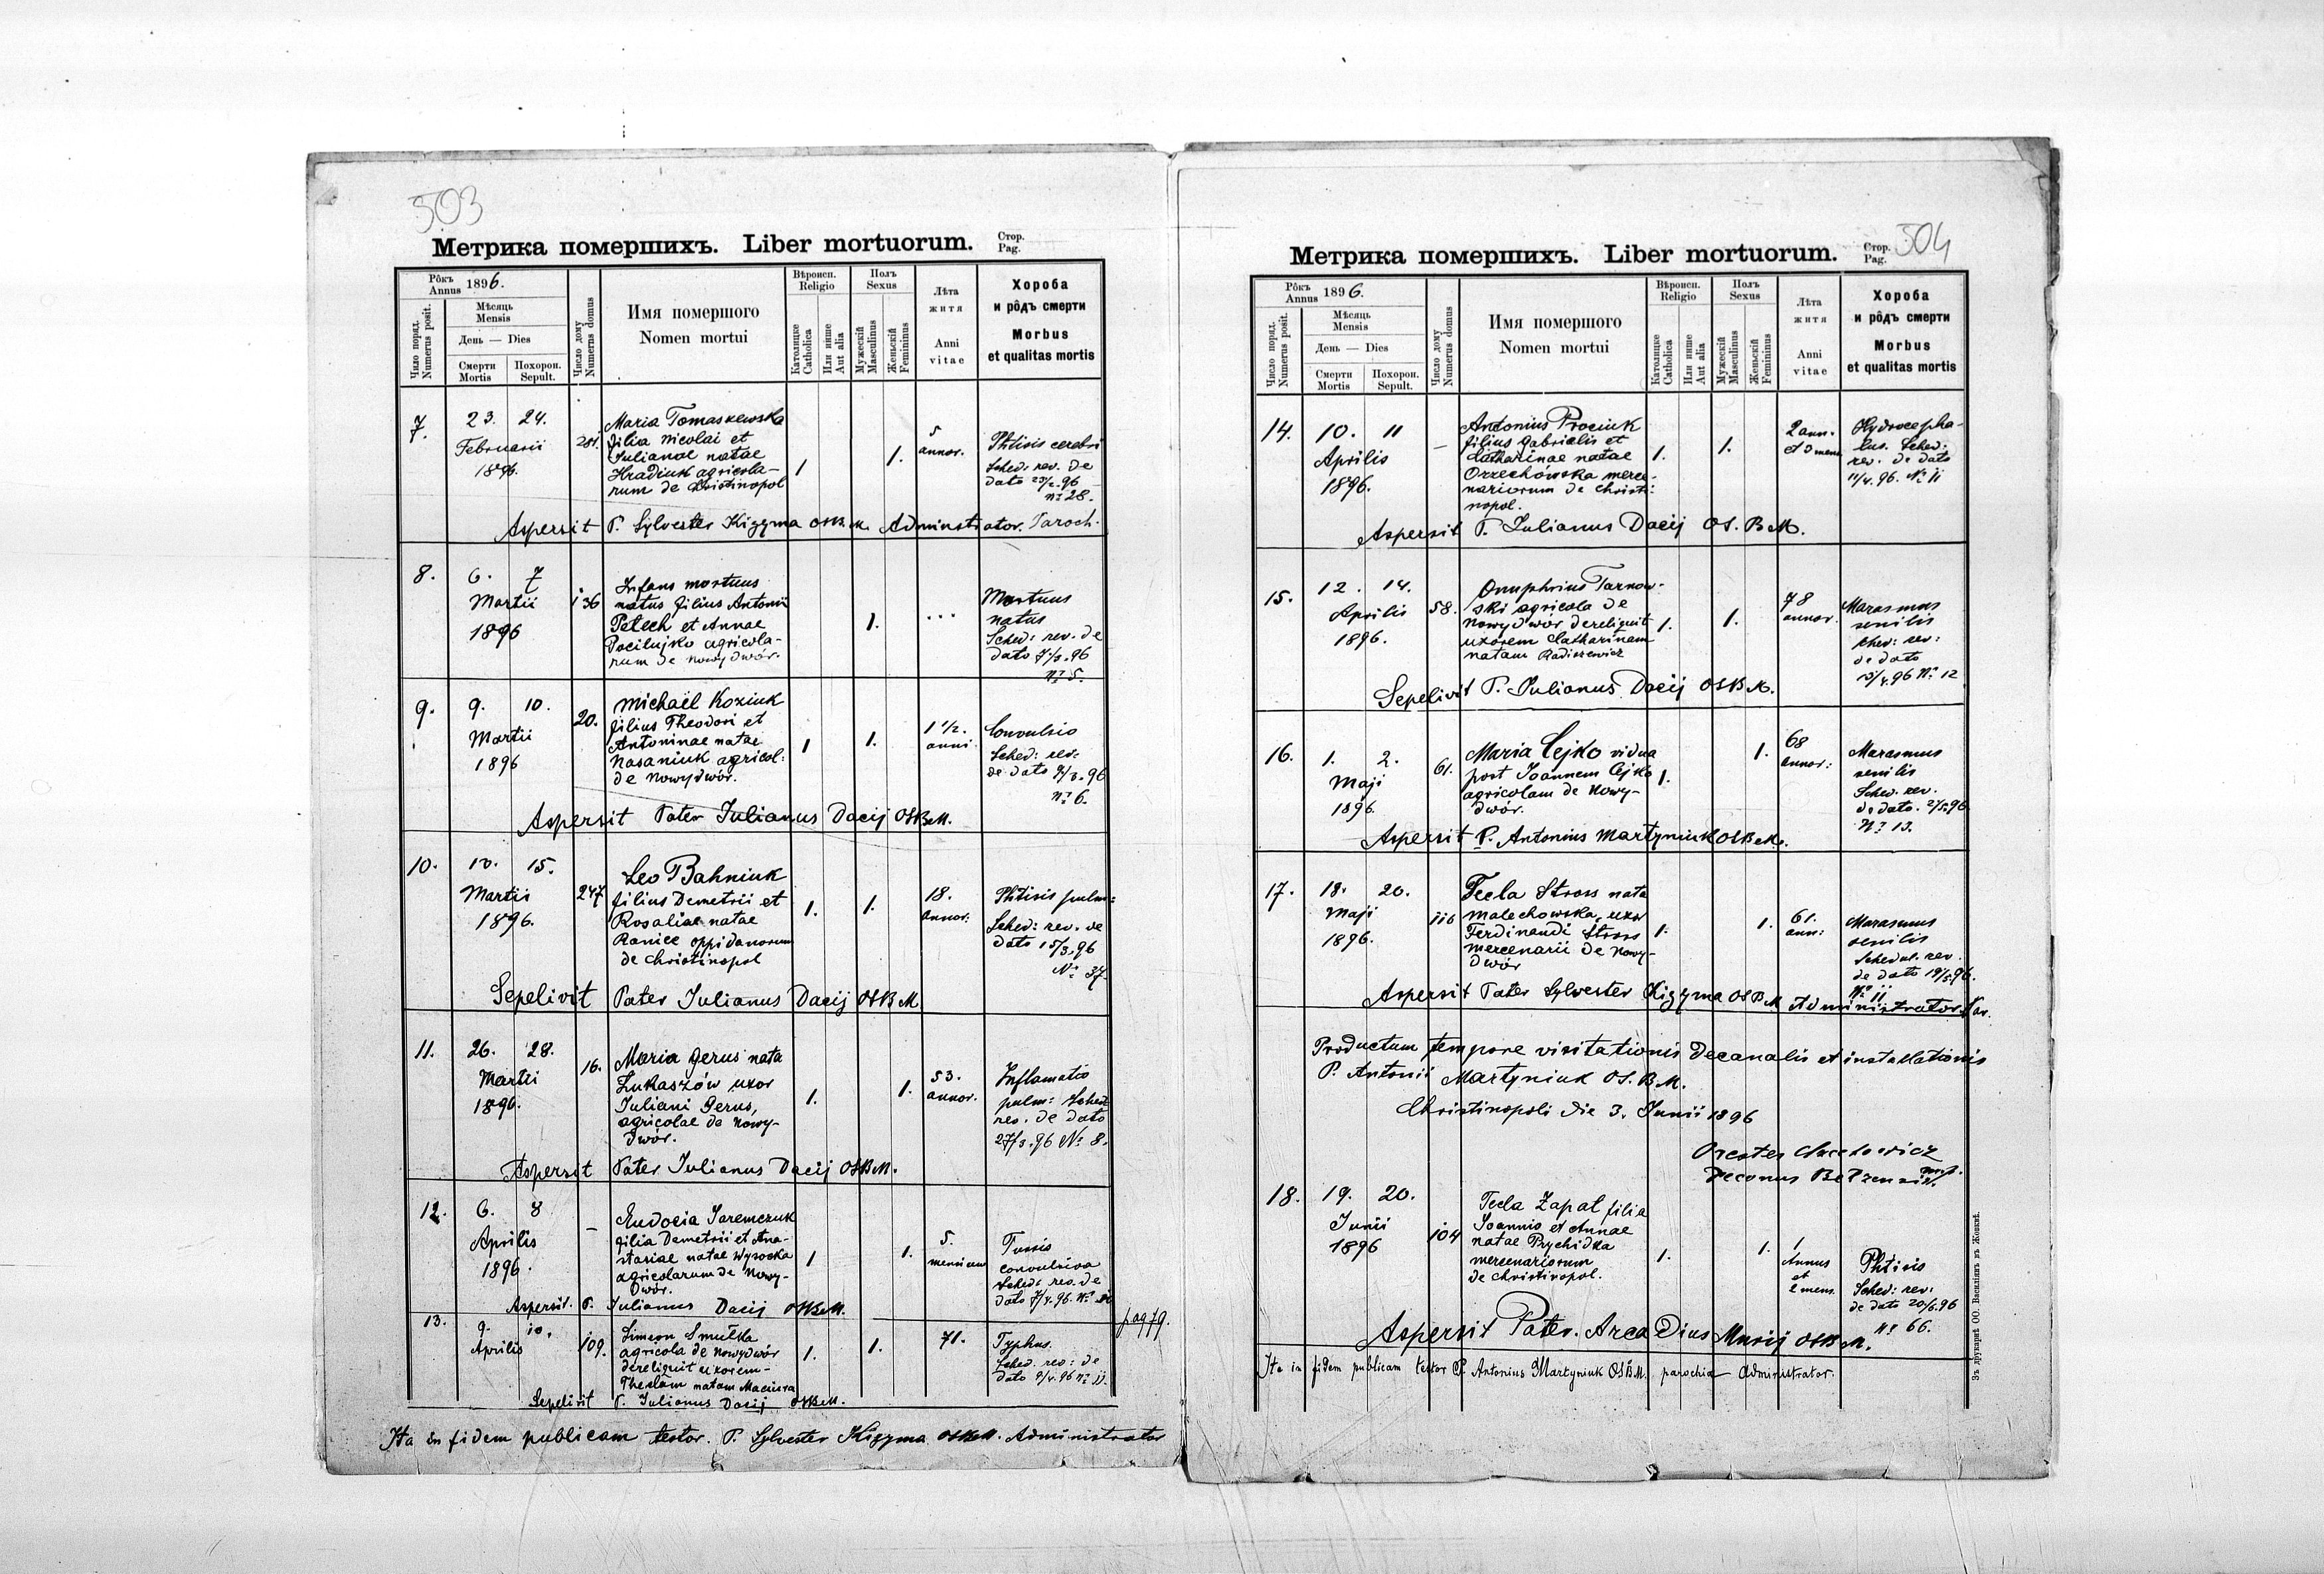 503
Метрика помершихъ. Liber mortuorum.
Стор.
Pag.
Рôкъ
Annus 1896.
Мѣсяць
Mensis
День — Dies
Смерти
Mortis
Похорон.
Sepult.
Число поряд.
Numerus posit.
Число дому
Numerus domus
Имя помершого
Nomen mortui
Вѣроисп.
Religio
Католицке
Catholica
Или инше
Aut alia
Полъ
Sexus
Мужескій
Masculinus
Женьскій
Femininus
Лѣта
житя
Anni
vitae
Хороба
и рôдъ смерти
Morbus
et qualitas mortis
7.
23. 24.
Februarii
1896.
281.
Maria Tomaszewska
filia Nicolai et
Julianae natae
Hradiuk agricola-
rum de Christinopol
1
1.
5
annor.
Phtisis cerebri
Sched: rev. de
dato 23/2.96
No 28.
Aspersit P. Sylvester Kizyma OSB.M. Adminstrator. Paroch.
8.
6. 7
Martii
1896
136
Infans mortuus
natus filius Antonii
Petech et Annae
Pocilujko agricola-
rum de Nowydwór.
1.
...
Mortuus
natus
Sched: rev. de
dato 7/3.96
No 5.
9.
9. 10.
Martii
1896
20.
Michaël Koziuk
filius Theodori et
Antoninae natae
Nasaniuk agricol:
de Nowydwór.
1
1.
1 1/2.
anni
Convulsio
Sched: rev:
de dato 9/3.96
No 6.
Aspersit Pater Julianus Dacij OSBM.
10.
13. 15.
Martii
1896.
247
Leo Bahniuk
filius Demetrii et
Rosaliae natae
Ranice oppidanorum
de Christinopol
1.
1.
18.
annor.
Phtisis pulm:
Sched: rev. de
dato 15/3.96
No 37.
Sepelivit Pater Julianus Dacij OSBM
11.
26. 28.
Martii
1896.
16.
Maria Gerus nata
Łukaszów uxor
Juliani Gerus,
agricolae de Nowy-
dwór.
1.
1.
53.
annor.
Inflamatio
pulm: Sched
rev. de dato
27/3.96 No 8.
Aspersit Pater Julianus Dacij OSBM.
12.
6. 8
Aprilis
1896.
–
Eudocia Jaremczuk
filia Demetrii et Ana-
stasiae natae Wysocka
agricolarum de Nowy-
dwór.
1
1.
5.
mensium
Tussis
convulsiva
Sched: rev. de
dato 7/4.96. No
Aspersit. P. Julianus Dacij OSBM.
13.
9. 10.
Aprilis
109.
Simeon Smułka
agricola de Nowydwór
dereliquit uxorem-
Theclam natam Maciura
1.
1.
71.
Typhus.
Sched. rev: de
dato 9/4.96 No 11.
pag 79.
Sepelivit P. Julianus Dacij OSBM.
Ita in fidem publicam testor. P. Sylvester Kizyma OSBM. Administrator
504
Метрика помершихъ. Liber mortuorum.
Стор.
Pag.
Рôкъ
Annus 1896.
Мѣсяць
Mensis
День — Dies
Смерти
Mortis
Похорон.
Sepult.
Число поряд.
Numerus posit.
Число дому
Numerus domus
Имя помершого
Nomen mortui
Вѣроисп.
Religio
Католицке
Catholica
Или инше
Aut alia
Полъ
Sexus
Мужескій
Masculinus
Женьскій
Femininus
Лѣта
житя
Anni
vitae
Хороба
и рôдъ смерти
Morbus
et qualitas mortis
14.
10. 11
Aprilis
1896.
–
Antonius Prociuk
filius Gabrielis et
Catharinae natae
Orzechówska merce-
nariorum de Christi:
nopol.
1.
1.
2 ann.
et 3 mens.
Hydrocepha-
lus. Sched.
rev. de dato
11/4.96. No 11
Aspersit P. Julianus Dacij OS.BM.
15.
12. 14.
Aprilis
1896.
58.
Onuphrius Tarnow-
ski agricola de
Nowydwór dereliquit
uxorem Catharinam
natam Radiszewicz
1.
1.
78
annor.
Marasmus
senilis
sched: rev:
de dato
13/4.96 No 12
Sepelivit P. Julianus Dacij OSBM.
16.
1. 2.
Maji
1896.
61.
Maria Cejko vidua
post Joannem Cejko
agricolam de Nowy-
dwór.
1.
1.
68
annor:
Marasmus
senilis
Sched. rev.
de dato. 2/5.96
No 13.
Aspersit P. Antonius Martyniuk OSBM.
17.
18. 20.
Maji
1896.
116
Tecla Stross nata
Malechowska, uxor
Ferdinandi Stross
mercenarii de Nowy-
dwór
1.
1.
61.
ann:
Marasmus
senilis
Schedul. rev.
de dato 19/5.96.
No 11
Aspersit Pater Sylvester Kizyma OSBM Administrator Par.
Productum tempore visitationis Decanalis et installationis
P. Antonii Martyniuk OS.B.M.
Christinopoli die 3. Junii 1896
Decanus Belzensis mp.
18.
19. 20.
Junii
1896
104
Tecla Zapał filia
Joannis et Annae
natae Prychidka
mercenariorum
de Christinopol.
1.
1.
1
Annus
et
2 mens.
Phtisis
Sched: rev:
de dato 20/6.96
No 66.
Aspersit Pater. Arcadius Musij OSBM.
Ita in fidem publicam testor P. Antonius Martyniuk OSBM. parochia Administrator.
Зъ друкарнѣ ОО. Василіянъ въ Жовквѣ.